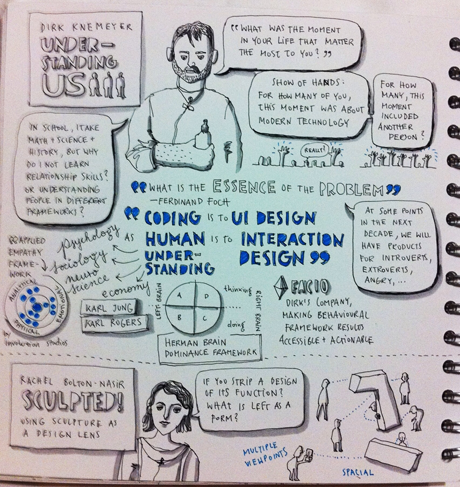 DIRK KNEMEYER
UNDER-
STANDING
US
"WHAT WAS THE MOMENT
IN YOUR LIFE THAT MATTER
THE MOST TO YOU?"
SHOW OF HANDS:
FOR HOW MANY OF YOU,
THIS MOMENT WAS ABOUT
MODERN TECHNOLOGY
FOR HOW
MANY, THIS
MOMENT
INCLUDED
ANOTHER
PERSON?
REALLY?
IN SCHOOL, I TAKE
MATH + SCIENCE +
HISTORY, BUT WHY
DO I NOT LEARN
RELATIONSHIP SKILLS?
OR UNDERSTANDING
PEOPLE IN DIFFERENT
FRAMEWORKS?
"WHAT IS THE ESSENCE OF THE PROBLEM"
—FERDINAND FOCH
"CODING IS TO UI DESIGN
AS HUMAN IS TO INTERACTION
UNDER- DESIGN"
STANDING
AT SOME POINTS
IN THE NEXT
DECADE, WE WILL
HAVE PRODUCTS
FOR INTROVERTS,
EXTROVERTS,
ANGRY, ...
APPLIED
EMPATHY
FRAME-
WORK
psychology
sociology
neuro
science
economy
KARL JUNG
KARL ROGERS
ANALYTICAL
EMOTIONAL
PHYSICAL
by
involution studios
LEFT BRAIN
A D
B C
thinking
doing
RIGHT BRAIN
HERMAN BRAIN
DOMINANCE FRAMEWORK
FACIO
DIRK'S COMPANY,
MAKING BEHAVIOURAL
FRAMEWORK
ACCESSIBLE + ACTIONABLE
RACHEL BOLTON-NASIR
SCULPTED!
USING SCULPTURE AS
A DESIGN LENS
IF YOU STRIP A DESIGN
OF ITS FUNCTION?
WHAT IS LEFT AS A
FORM?
MULTIPLE
VIEWPOINTS
SPACIAL